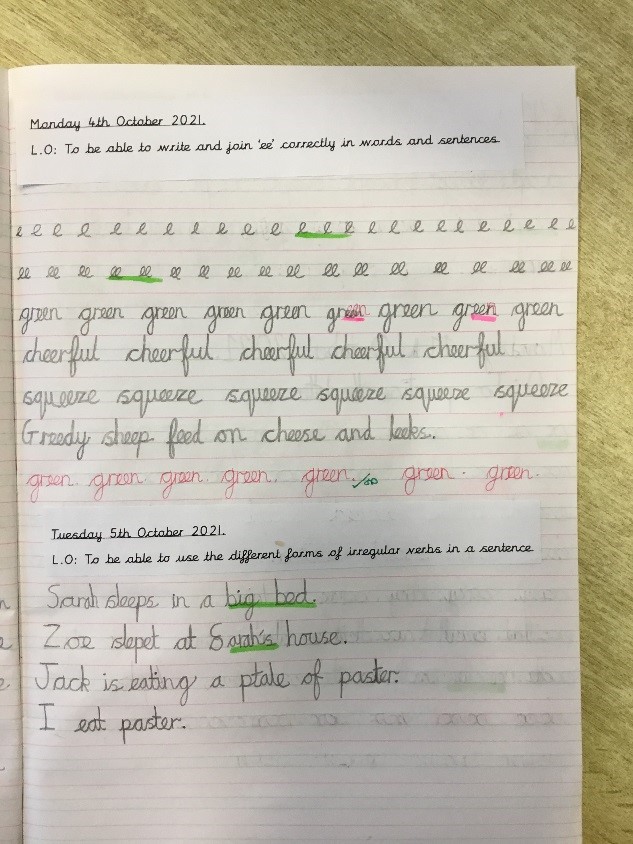 Monday 4th October 2021.
L.O: To be able to write and join 'ee' correctly in words and sentences
e e e e e e e e e e e e e e e e e e e e e e e
ee ee ee ee ee ee ee ee ee ee ee ee ee ee ee ee ee ee
green green green green green green green green green
cheerful cheerful cheerful cheerful cheerful
squeeze squeeze squeeze squeeze squeeze squeeze
Greedy sheep feed on cheese and leeks.
green. green. green. green. green. green. green.
Tuesday 5th October 2021.
L.O: To be able to use the different forms of irregular verbs in a sentence
Sarah sleeps in a big bed.
Zoe slepet at Sarah's house.
Jack is eating a ptale of paster.
I eat paster.